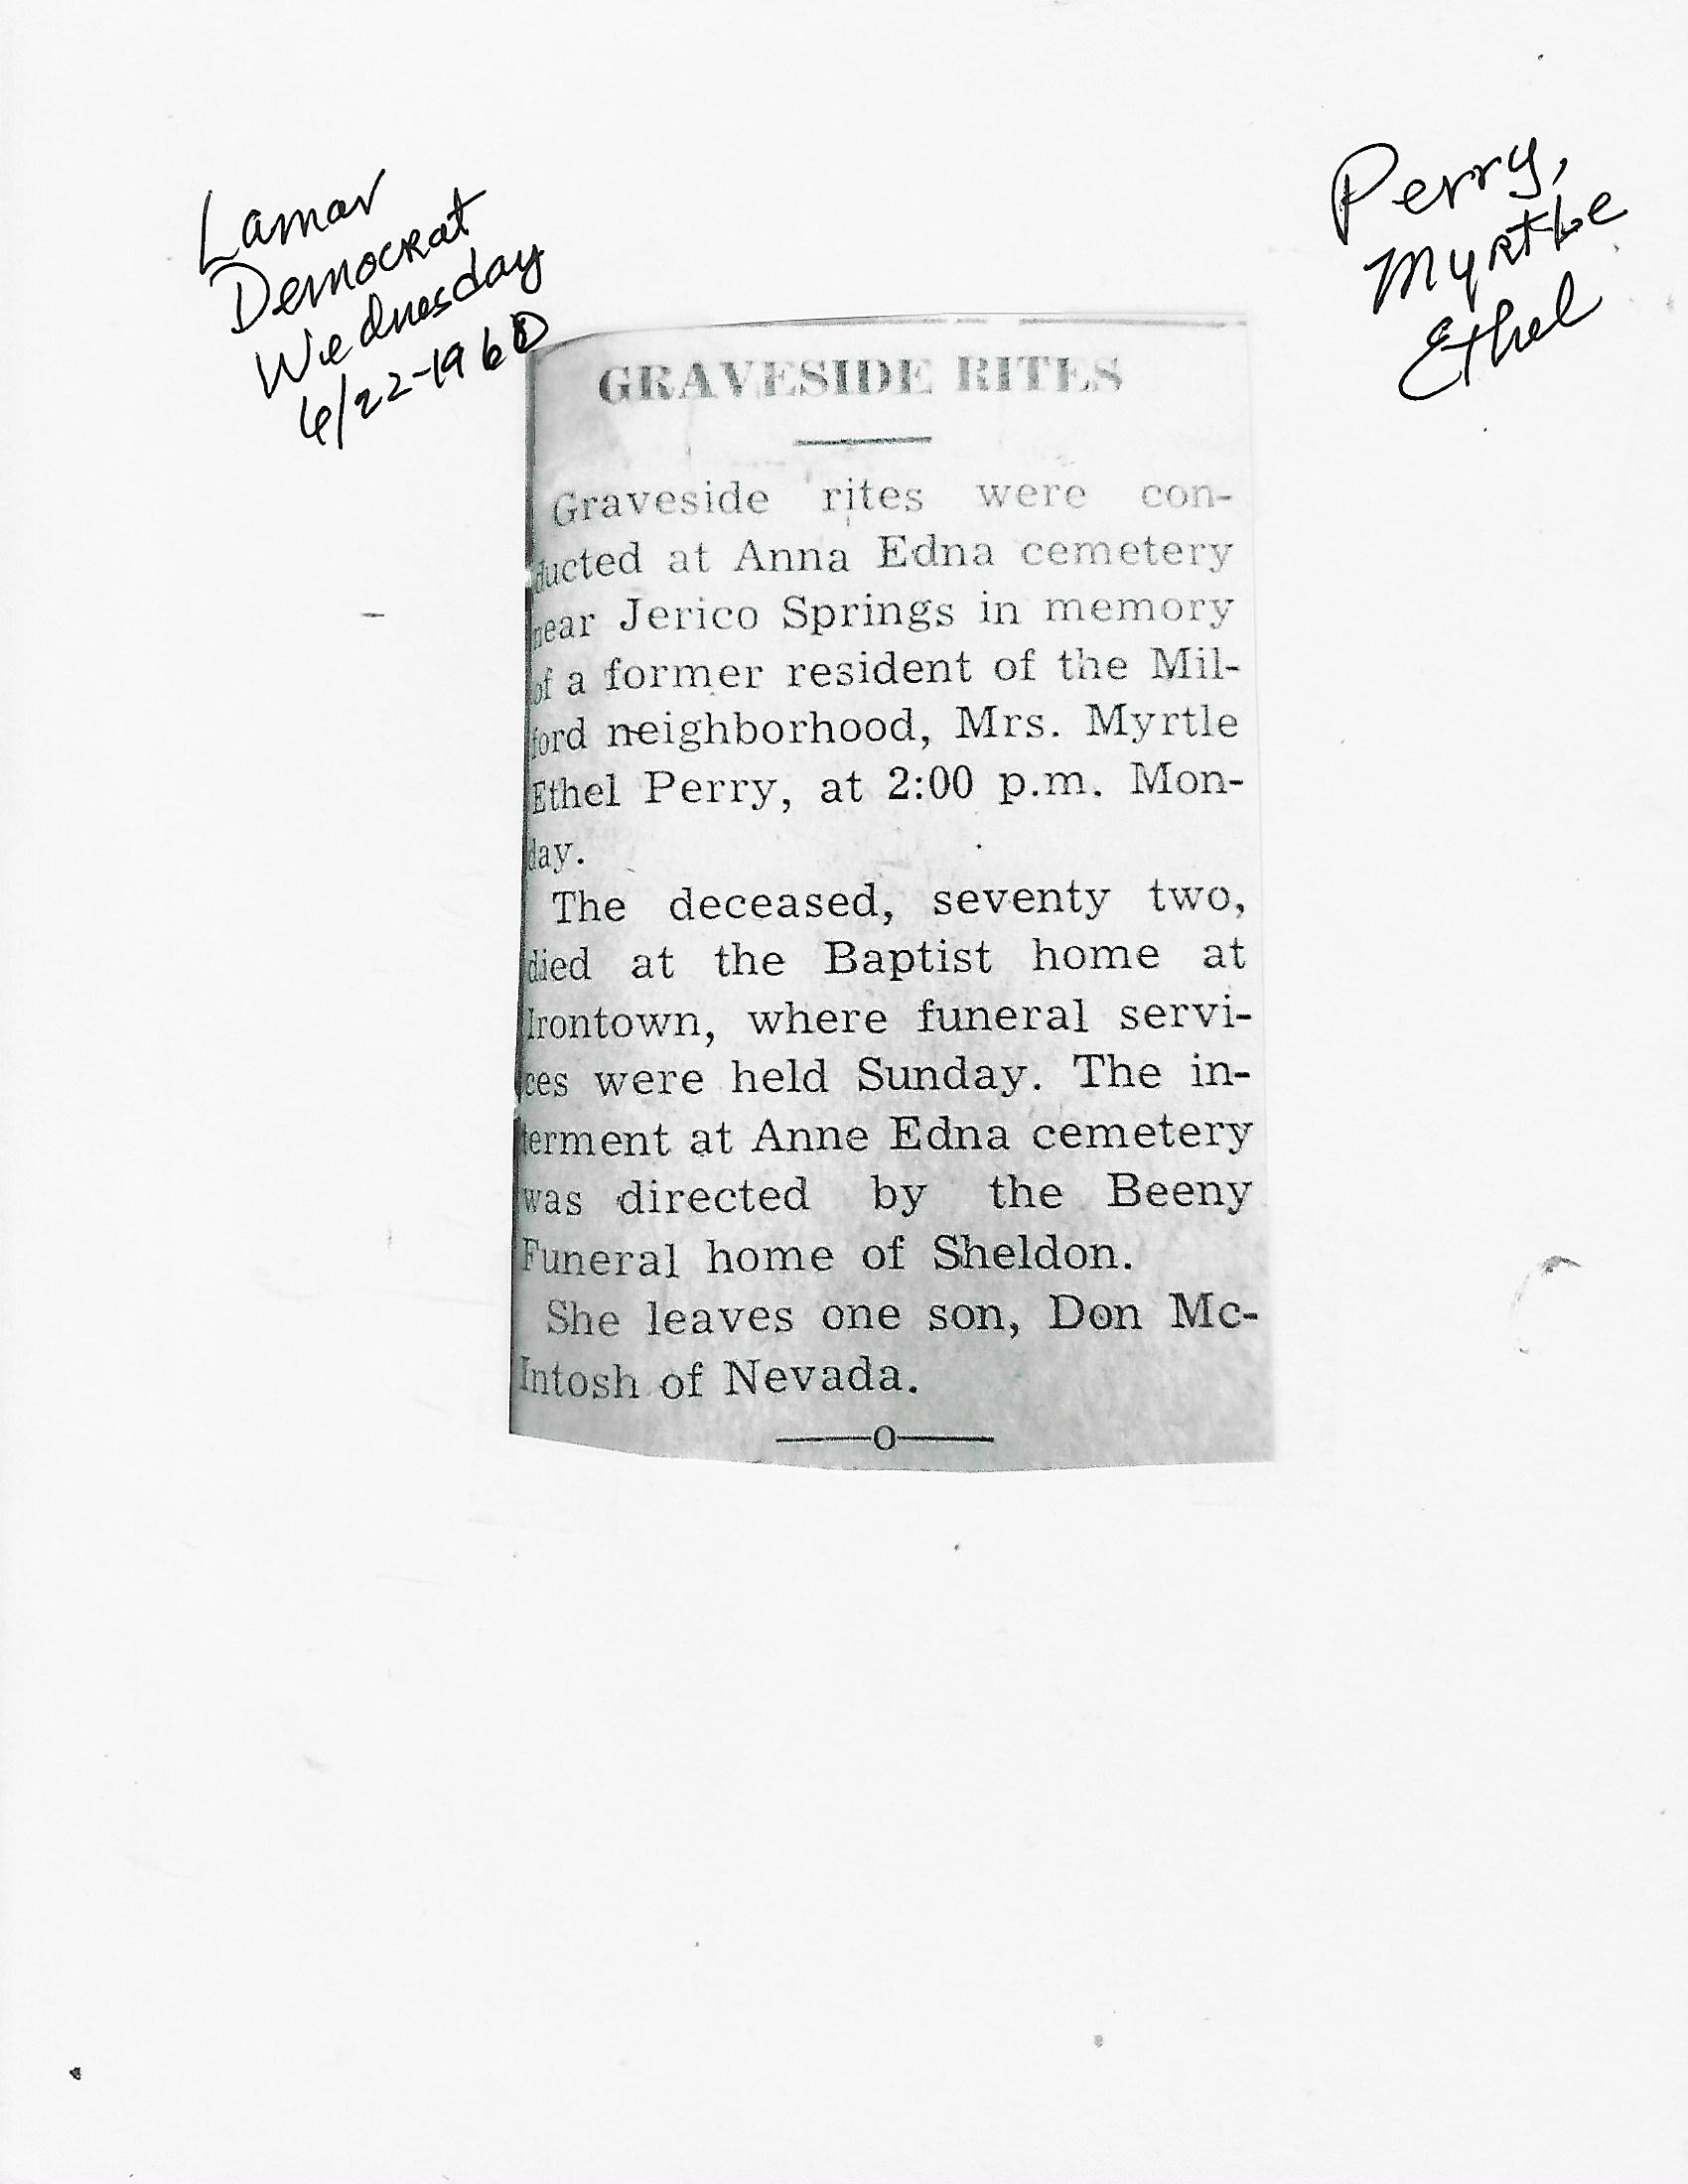 Lamar
Democrat
Wednesday
6/22-1960
Perry,
Myrtle
Ethel
GRAVESIDE RITES
Graveside rites were con-
ducted at Anna Edna cemetery
near Jerico Springs in memory
of a former resident of the Mil-
ford neighborhood, Mrs. Myrtle
Ethel Perry, at 2:00 p.m. Mon-
day.
The deceased, seventy two,
died at the Baptist home at
Irontown, where funeral servi-
ces were held Sunday. The in-
terment at Anne Edna cemetery
was directed by the Beeny
Funeral home of Sheldon.
She leaves one son, Don Mc-
Intosh of Nevada.